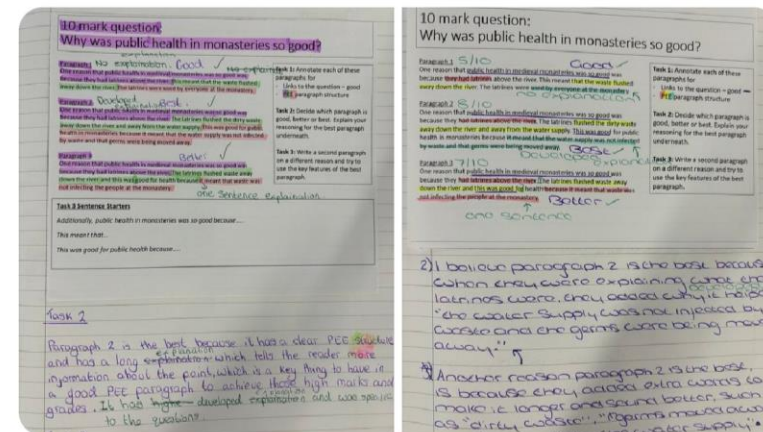 10 mark question:
Why was public health in monasteries so good?
Paragraph 1 No explanation. Good
One reason that public health in medieval monasteries was so good was
because they had latrines above the river. This meant that the waste flushed
away down the river. The latrines were used by everyone at the monastery.
Paragraph 2 Developed Best
One reason that public health in medieval monasteries was so good was
because they had latrines above the river. The latrines flushed the dirty waste
away down the river and away from the water supply. This was good for public
health in monasteries because it meant that the water supply was not infected
by waste and that germs were being moved away.
Paragraph 3 Better
One reason that public health in medieval monasteries was so good was
because they had latrines above the river. The latrines flushed waste away
down the river and this was good for health because it meant that waste was
not infecting the people at the monastery.
one sentence explaination
Task 1: Annotate each of these
paragraphs for
- Links to the question = good
- PEE paragraph structure
Task 2: Decide which paragraph is
good, better or best. Explain your
reasoning for the best paragraph
underneath.
Task 3: Write a second paragraph
on a different reason and try to
use the key features of the best
paragraph.
Task 3 Sentence Starters
Additionally, public health in monasteries was so good because....
This meant that...
This was good for public health because....
Task 2
Paragraph 2 is the best because it has a clear PEE structure
and has a long explanation which tells the reader more
information about the point, which is a key thing to have in
a good PEE paragraph to achieve those high marks and
grades. It had developed explanation and was specific
to the question.
10 mark question:
Why was public health in monasteries so good?
Paragraph 1 5/10 Good
One reason that public health in medieval monasteries was so good was
because they had latrines above the river. This meant that the waste flushed
away down the river. The latrines were used by everyone at the monastery.
no explanation
Paragraph 2 8/10
One reason that public health in medieval monasteries was so good was
because they had latrines above the river. The latrines flushed the dirty waste
away down the river and away from the water supply. This was good for public
health in monasteries because it meant that the water supply was not infected
by waste and that germs were being moved away. Best
developed
Paragraph 3 7/10
One reason that public health in medieval monasteries was so good was
because they had latrines above the river. The latrines flushed waste away
down the river and this was good for health because it meant that waste was
not infecting the people at the monastery. Better
one sentence
Task 1: Annotate each of these
paragraphs for
- Links to the question = good
- PEE paragraph structure
Task 2: Decide which paragraph is
good, better or best. Explain your
reasoning for the best paragraph
underneath.
Task 3: Write a second paragraph
on a different reason and try to
use the key features of the best
paragraph.
2) I believe paragraph 2 is the best because
when they were explaining what the
latrines were, they added why it helped
"the water supply was not injected by
waste and the germs were being moved
away."
Another reason paragraph 2 is the best,
is because they added extra words to
make it longer and sound better, such
as "dirty waste", "germs moved away
water supply".